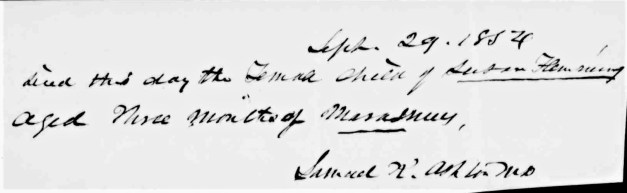 Sept. 29. 1854
died this day the Female Child of Susan Flemming
aged Three Months of Marasmus,
Samuel K. Ashton MD